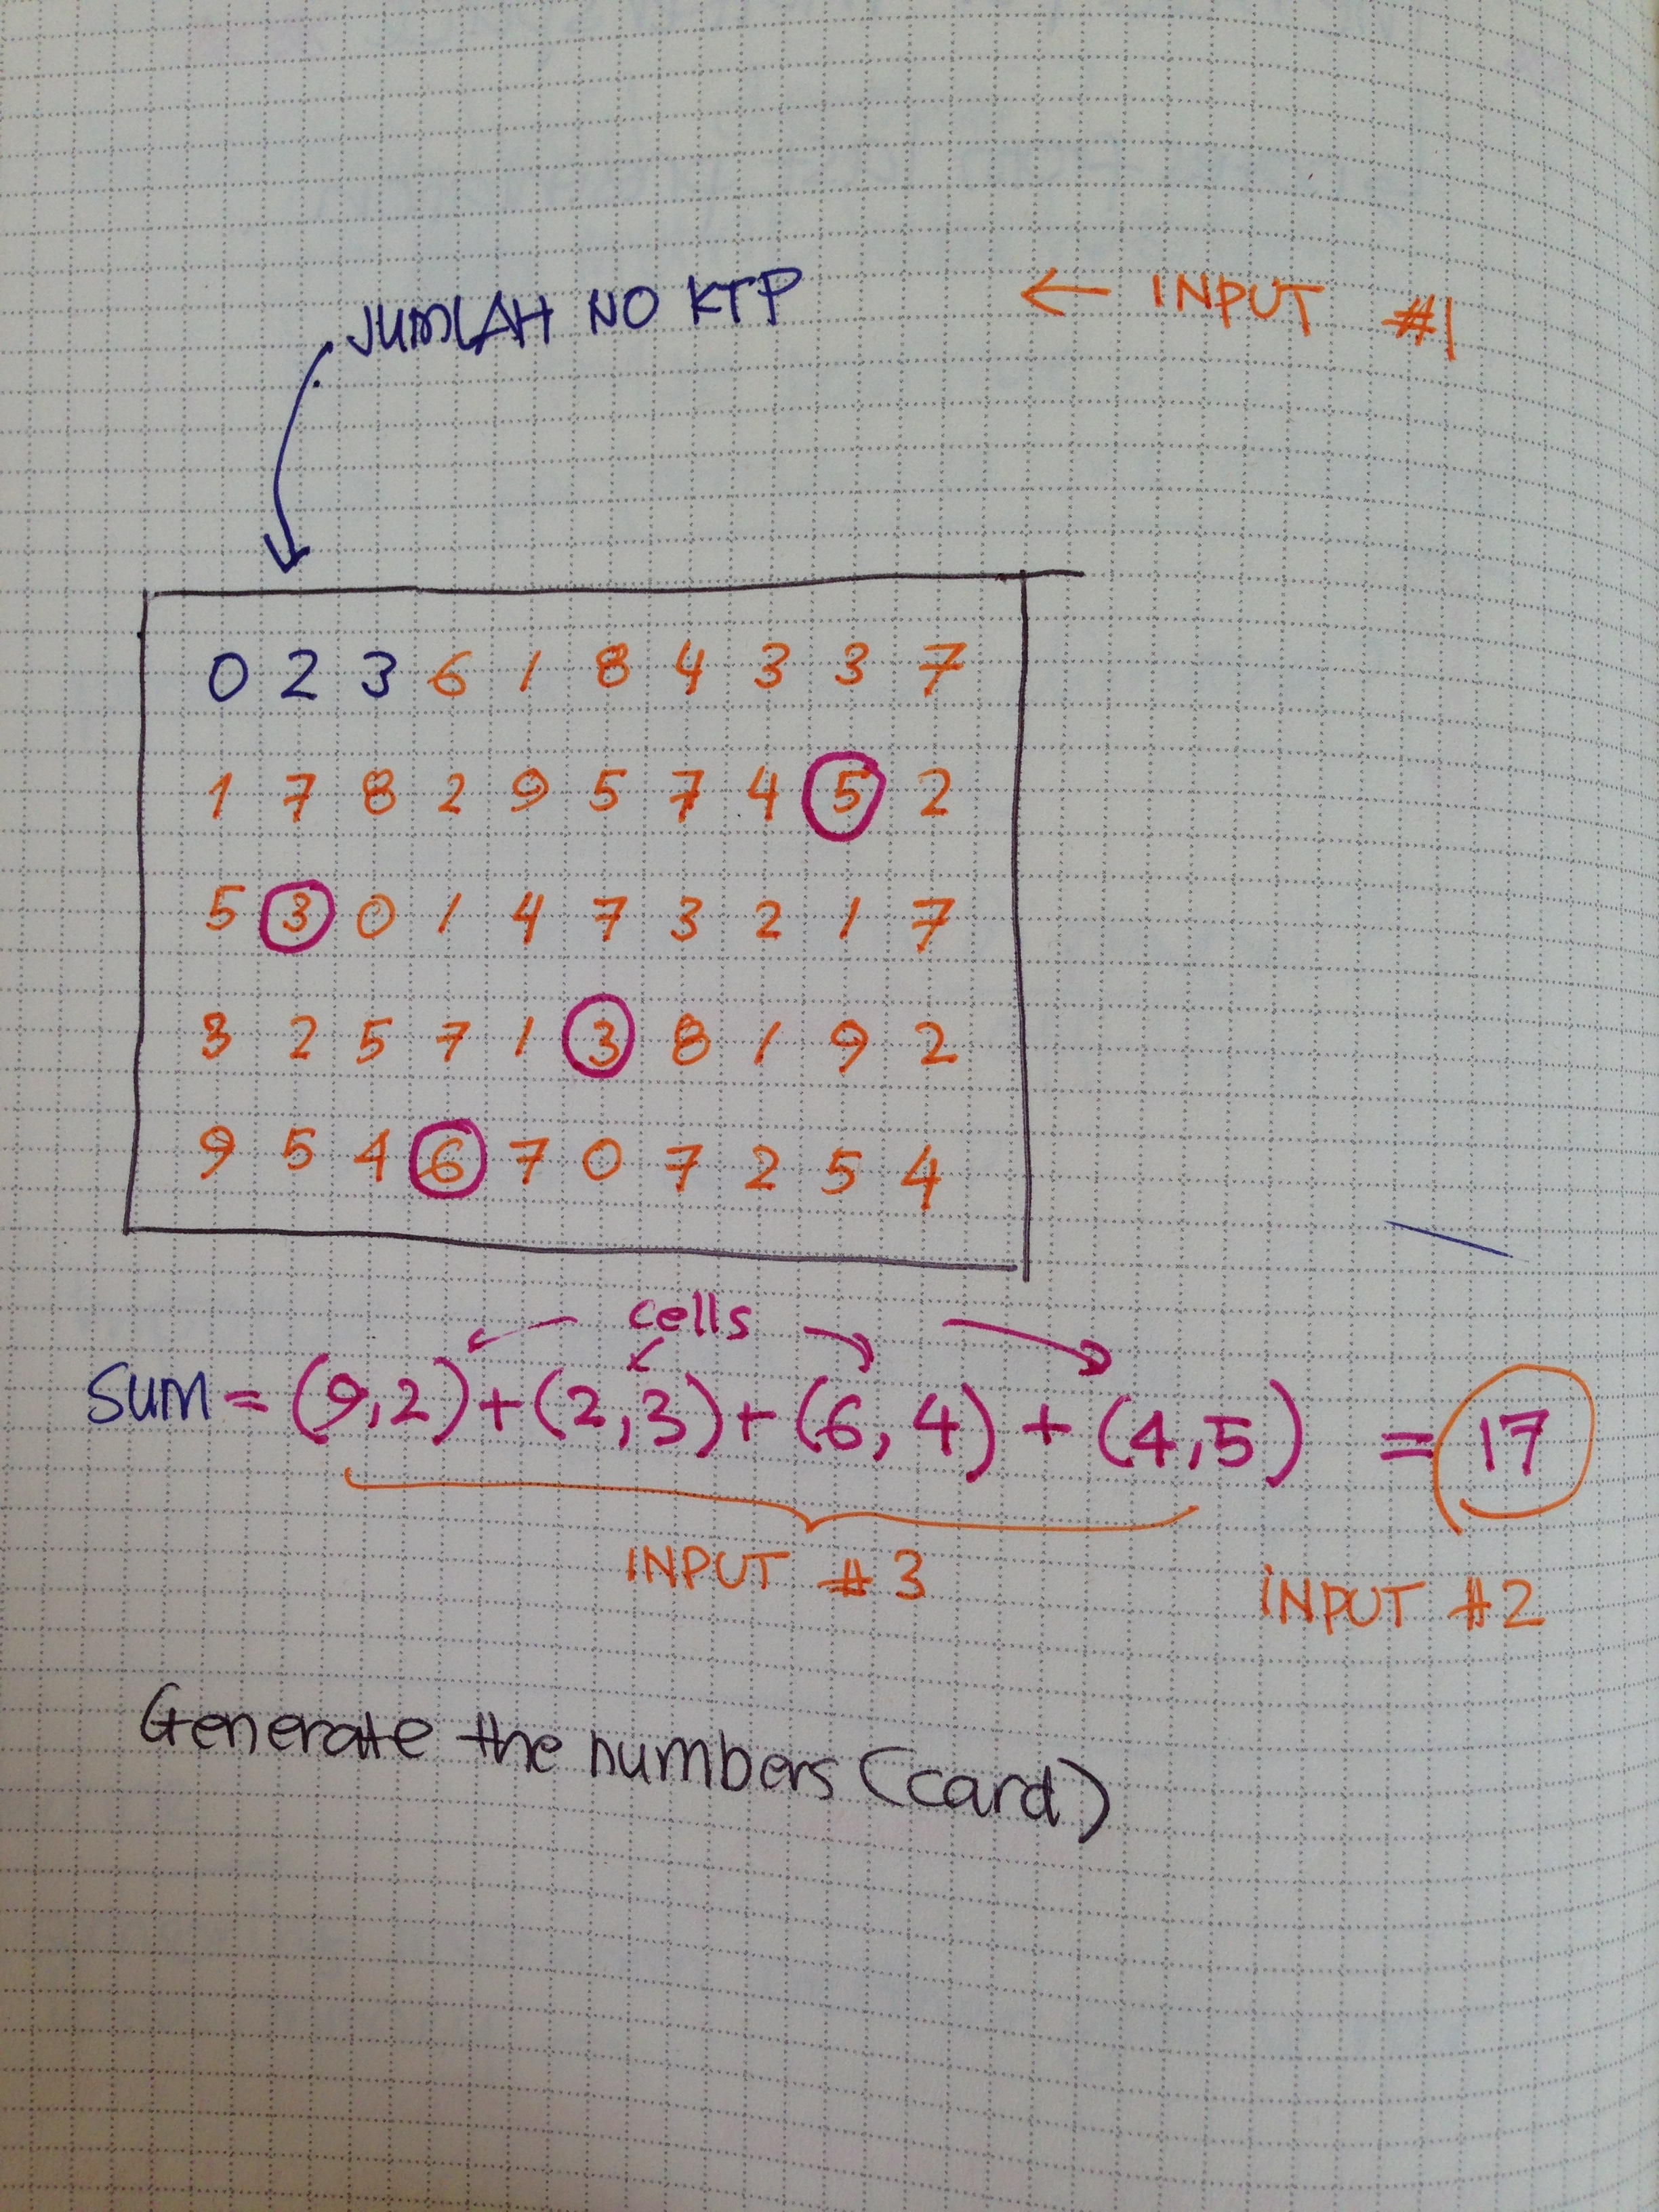 JUMLAH NO KTP ← INPUT #1
0 2 3 6 1 8 4 3 3 7
1 7 8 2 9 5 7 4 5 2
5 3 0 1 4 7 3 2 1 7
3 2 5 7 1 3 8 1 9 2
9 5 4 6 7 0 7 2 5 4
cells
SUM = (9,2)+(2,3)+(6,4)+(4,5) = 17
INPUT #3 INPUT #2
Generate the numbers (card)